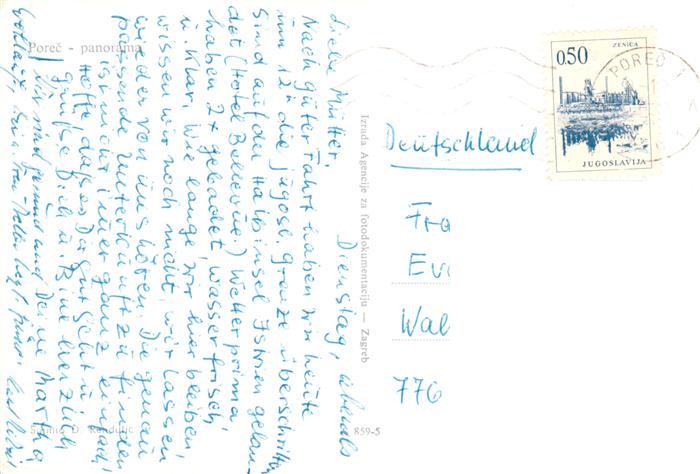 Poreč - panorama
Dienstag, abends
Liebe Mutter,
Nach guter Fahrt haben wir heute
um 12⁰⁰ die jugosl. Grenze überschritten
Sind auf der Halbinsel Istrien gelan-
det (Hotel Bellevue.) Wetter prima
haben 2 x gebadet, Wasser frisch
u. klar. Wie lange wir hier bleiben,
wissen wir noch nicht, wir lassen
wieder von uns hören. Die genau
passende Unterkunft zu finden
ist nicht immer ganz einfach.
Hoffe daß es Dir gut geht u.
grüße Dich u. Bine herzlich
Wir sind gesund und Deine Martha
Snimio D.
859-5
Izrada Agencije za fotodokumentaciju — Zagreb
0.50
ZENICA
JUGOSLAVIJA
POREČ
Deutschland
Fra
Evi
Wal
776